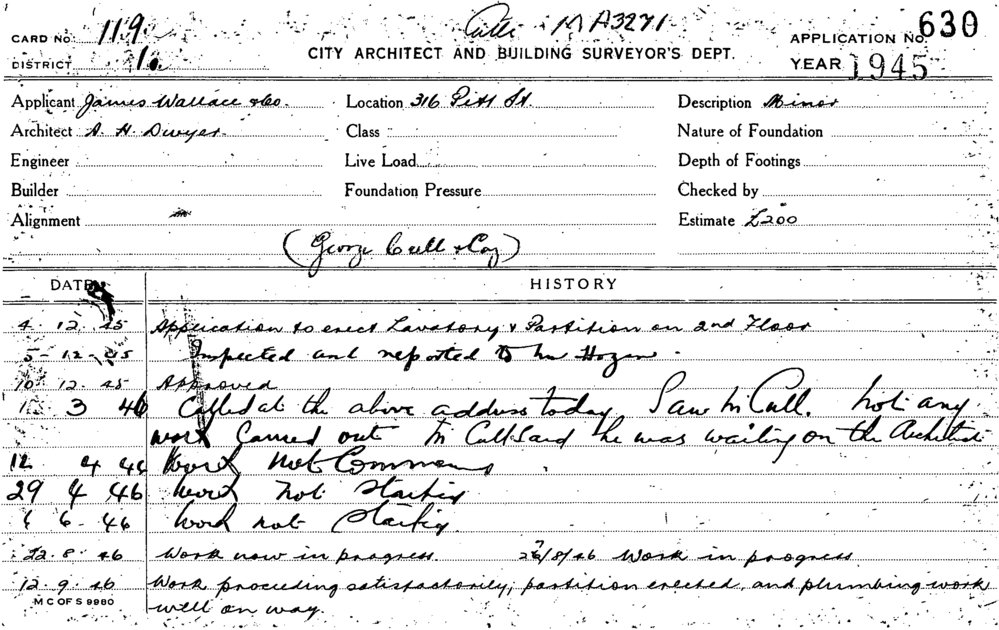 CARD No. 119
DISTRICT 1
M A3271
CITY ARCHITECT AND BUILDING SURVEYOR'S DEPT.
APPLICATION No. 630
YEAR 1945
Applicant James Wallace & Co. Location 316 Pitt St. Description Minor
Architect A. H. Dwyer Class Nature of Foundation
Engineer Live Load Depth of Footings
Builder Foundation Pressure Checked by
Alignment Estimate £200
(George Cull & Coy)
DATE HISTORY
4 12 45 Application to erect Lavatory & Partition on 2nd Floor
5-12-45 Inspected and reported to Mr Hogan.
10.12.45 Approved
1 3 46 Called at the above address today Saw Mr Cull. Not any
work carried out Mr Cull said he was waiting on the Architect
12 4 46 Work not Commenc
29 4 46 Work not Started
6 46 Work not Started
22.8.46 Work now in progress. /8/46 Work in progress
12.9.46 Work proceeding satisfactorily, partition erected, and plumbing work
well on way.
M C OF S 9980